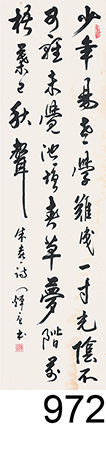 少年易老學難成一寸光陰不
可輕未覺池塘春草夢階前
梧葉已秋聲 朱熹詩 書
972